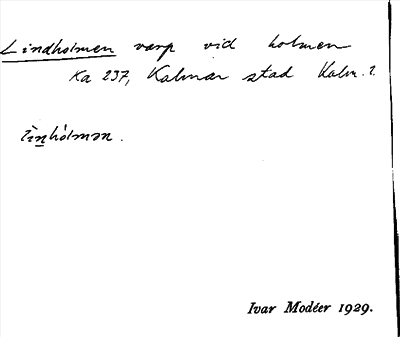 Lindholmen varp vid holmen
Ka 237, Kalmar stad Kalm. l.
lìnhòlmən.
Ivar Modéer 1929.